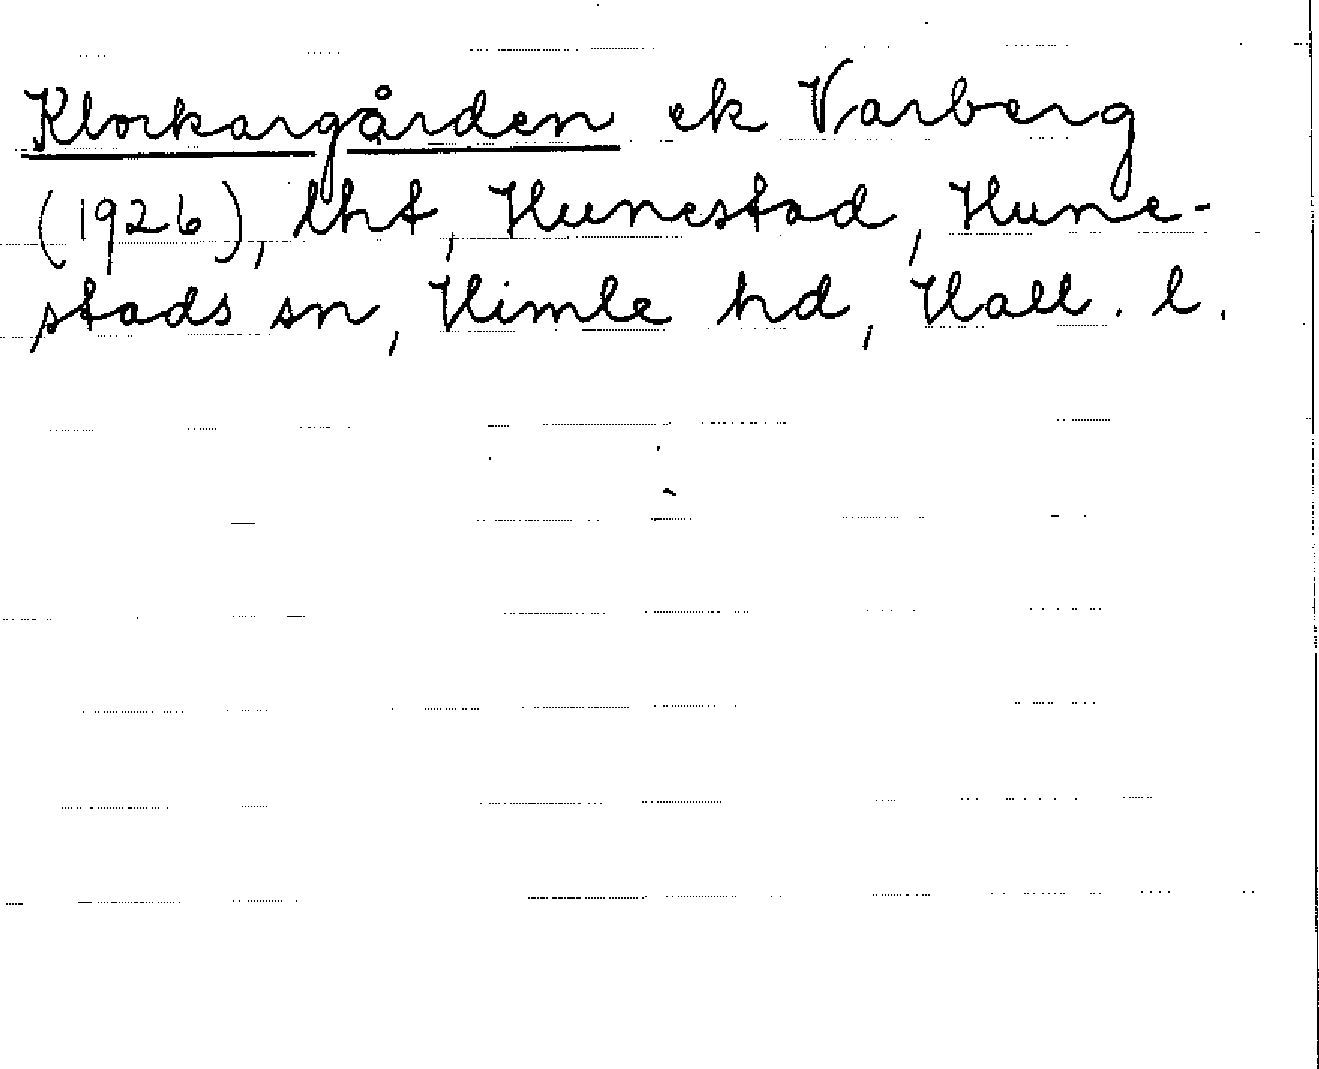 Klockargården ek Varberg
(1926), lht, Hunestad, Hune-
stads sn, Himle hd, Hall. l.